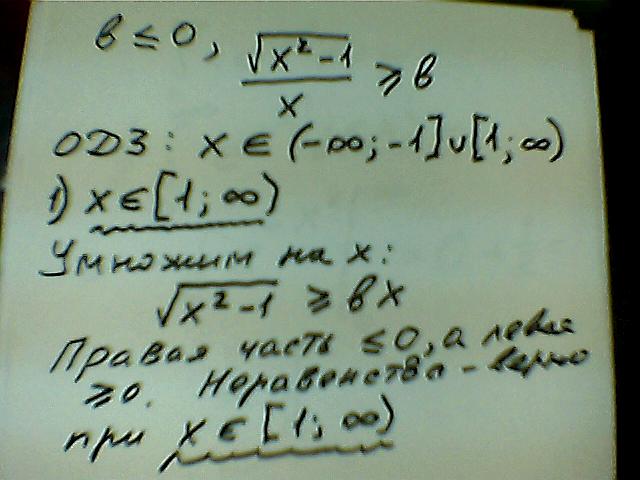 в ≤ 0, √(x²-1)/x ≥ в
ОДЗ: x ∈ (-∞; -1] ∪ [1; ∞)
1) x ∈ [1; ∞)
Умножим на x:
√(x²-1) ≥ вx
Правая часть ≤ 0, а левая
≥ 0. Неравенство - верно
при x ∈ [1; ∞)